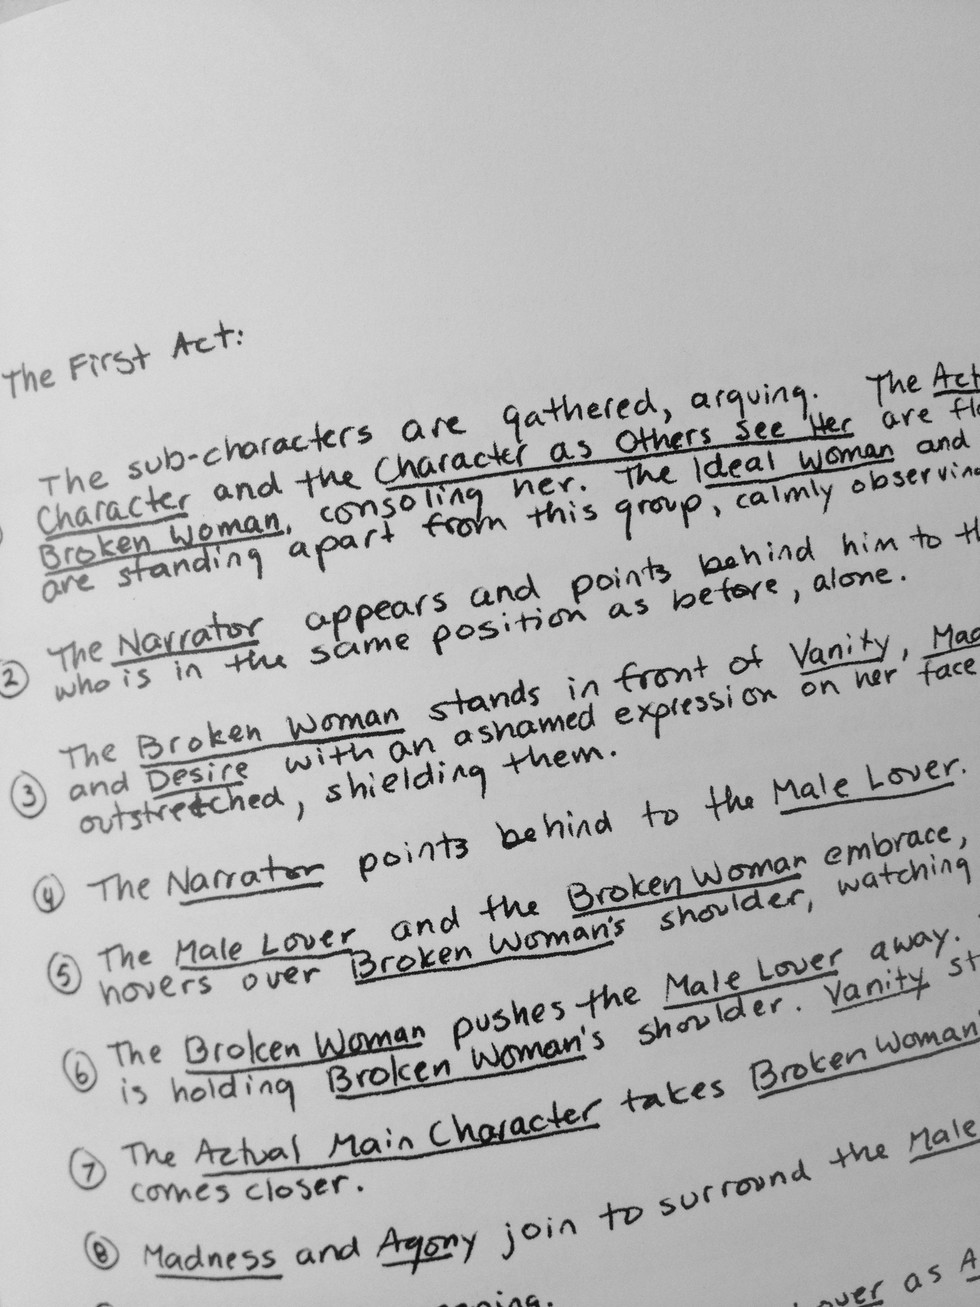 The First Act:
The sub-characters are gathered, arguing. The
Character and the Character as Others See Her are
Broken Woman, consoling her. The Ideal Woman and
are standing apart from this group, calmly
② The Narrator appears and points behind him to
who is in the same position as before, alone.
The Broken Woman stands in front of Vanity,
③ and Desire with an ashamed expression on her face
outstretched, shielding them.
④ The Narrator points behind to the Male Lover.
⑤ The Male Lover and the Broken Woman embrace,
hovers over Broken Woman's shoulder, watching
⑥ The Broken Woman pushes the Male Lover away.
is holding Broken Woman's shoulder. Vanity
⑦ The Actual Main Character takes Broken Woman's
comes closer.
⑧ Madness and Agony join to surround the Male
as